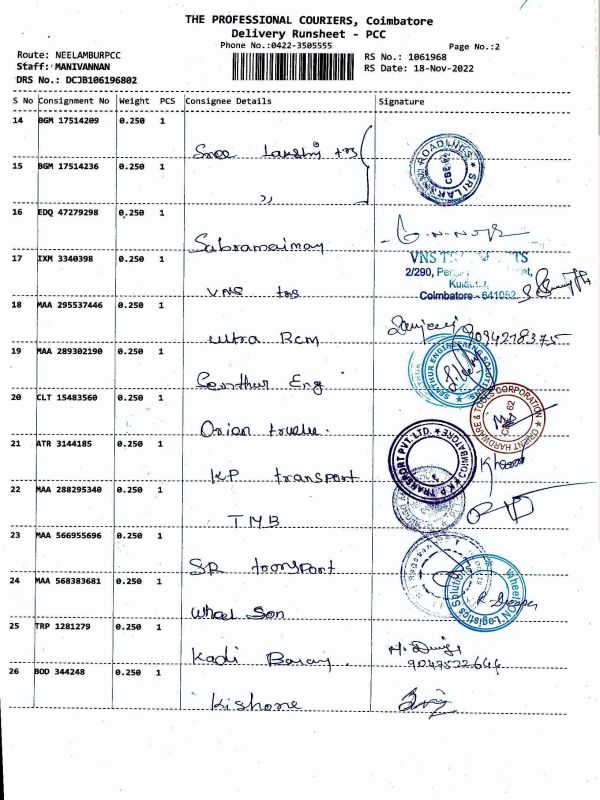 THE PROFESSIONAL COURIERS, Coimbatore
Delivery Runsheet - PCC
Phone No.:0422-3505555
Page No.:2
Route: NEELAMBURPCC
Staff: MANIVANNAN
DRS No.: DCJB106196802
RS No.: 1061968
RS Date: 18-Nov-2022
S No Consignment No Weight PCS Consignee Details Signature
14 BGM 17514209 0.250 1
Sree Lakshmi trs
ROADLINKS ★ SRI LAKSHMI ★ CBE
15 BGM 17514236 0.250 1
〃
16 EDQ 47279298 0.250 1
Subramaimay
17 IXM 3340398 0.250 1
VNS trs
VNS
2/290,
Coimbatore - 641062
18 MAA 295537446 0.250 1
Ultra Rcm
Sanjeevi 9094218375
19 MAA 289302190 0.250 1
Senthur Eng
SENTHUR ENGINEERING SOLUTIONS
20 CLT 15483560 0.250 1
Orian
ORIENT HARDWARE & TOOLS CORPORATION
62
21 ATR 3144185 0.250 1
KP transport
K.P. TRANSPORT PVT. LTD. ★ COIMBATORE ★
22 MAA 288295340 0.250 1
TMB
23 MAA 566955696 0.250 1
SR transport
24 MAA 568383681 0.250 1
Wheel Son
WheelsON Logistics Solutions
25 TRP 1281279 0.250 1
Kadi
9047522646
26 BOD 344248 0.250 1
Kishore